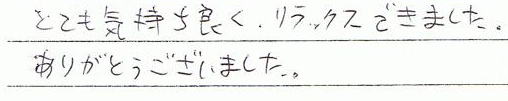 とても気持ち良く、リラックスできました。
ありがとうございました。